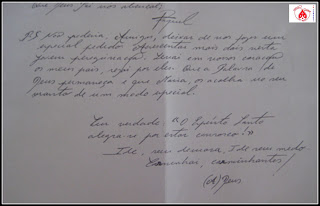 que Deus faz nos abençoe.
Raquel
P.S. Não poderia, Amigos, deixar de vos fazer um
especial pedido. Apresentar mais dois nesta
jovem peregrinação. Levar em vossos corações
os meus pais, rogai por eles. Que a Palavra de
Deus permaneça e que Maria os acolha no seu
manto de um modo especial.
Em verdade "O Espírito Santo
alegra-se por estar convosco!"
Ide, sem demora, Ide sem medo
Caminhai, caminhantes!
(A) Deus